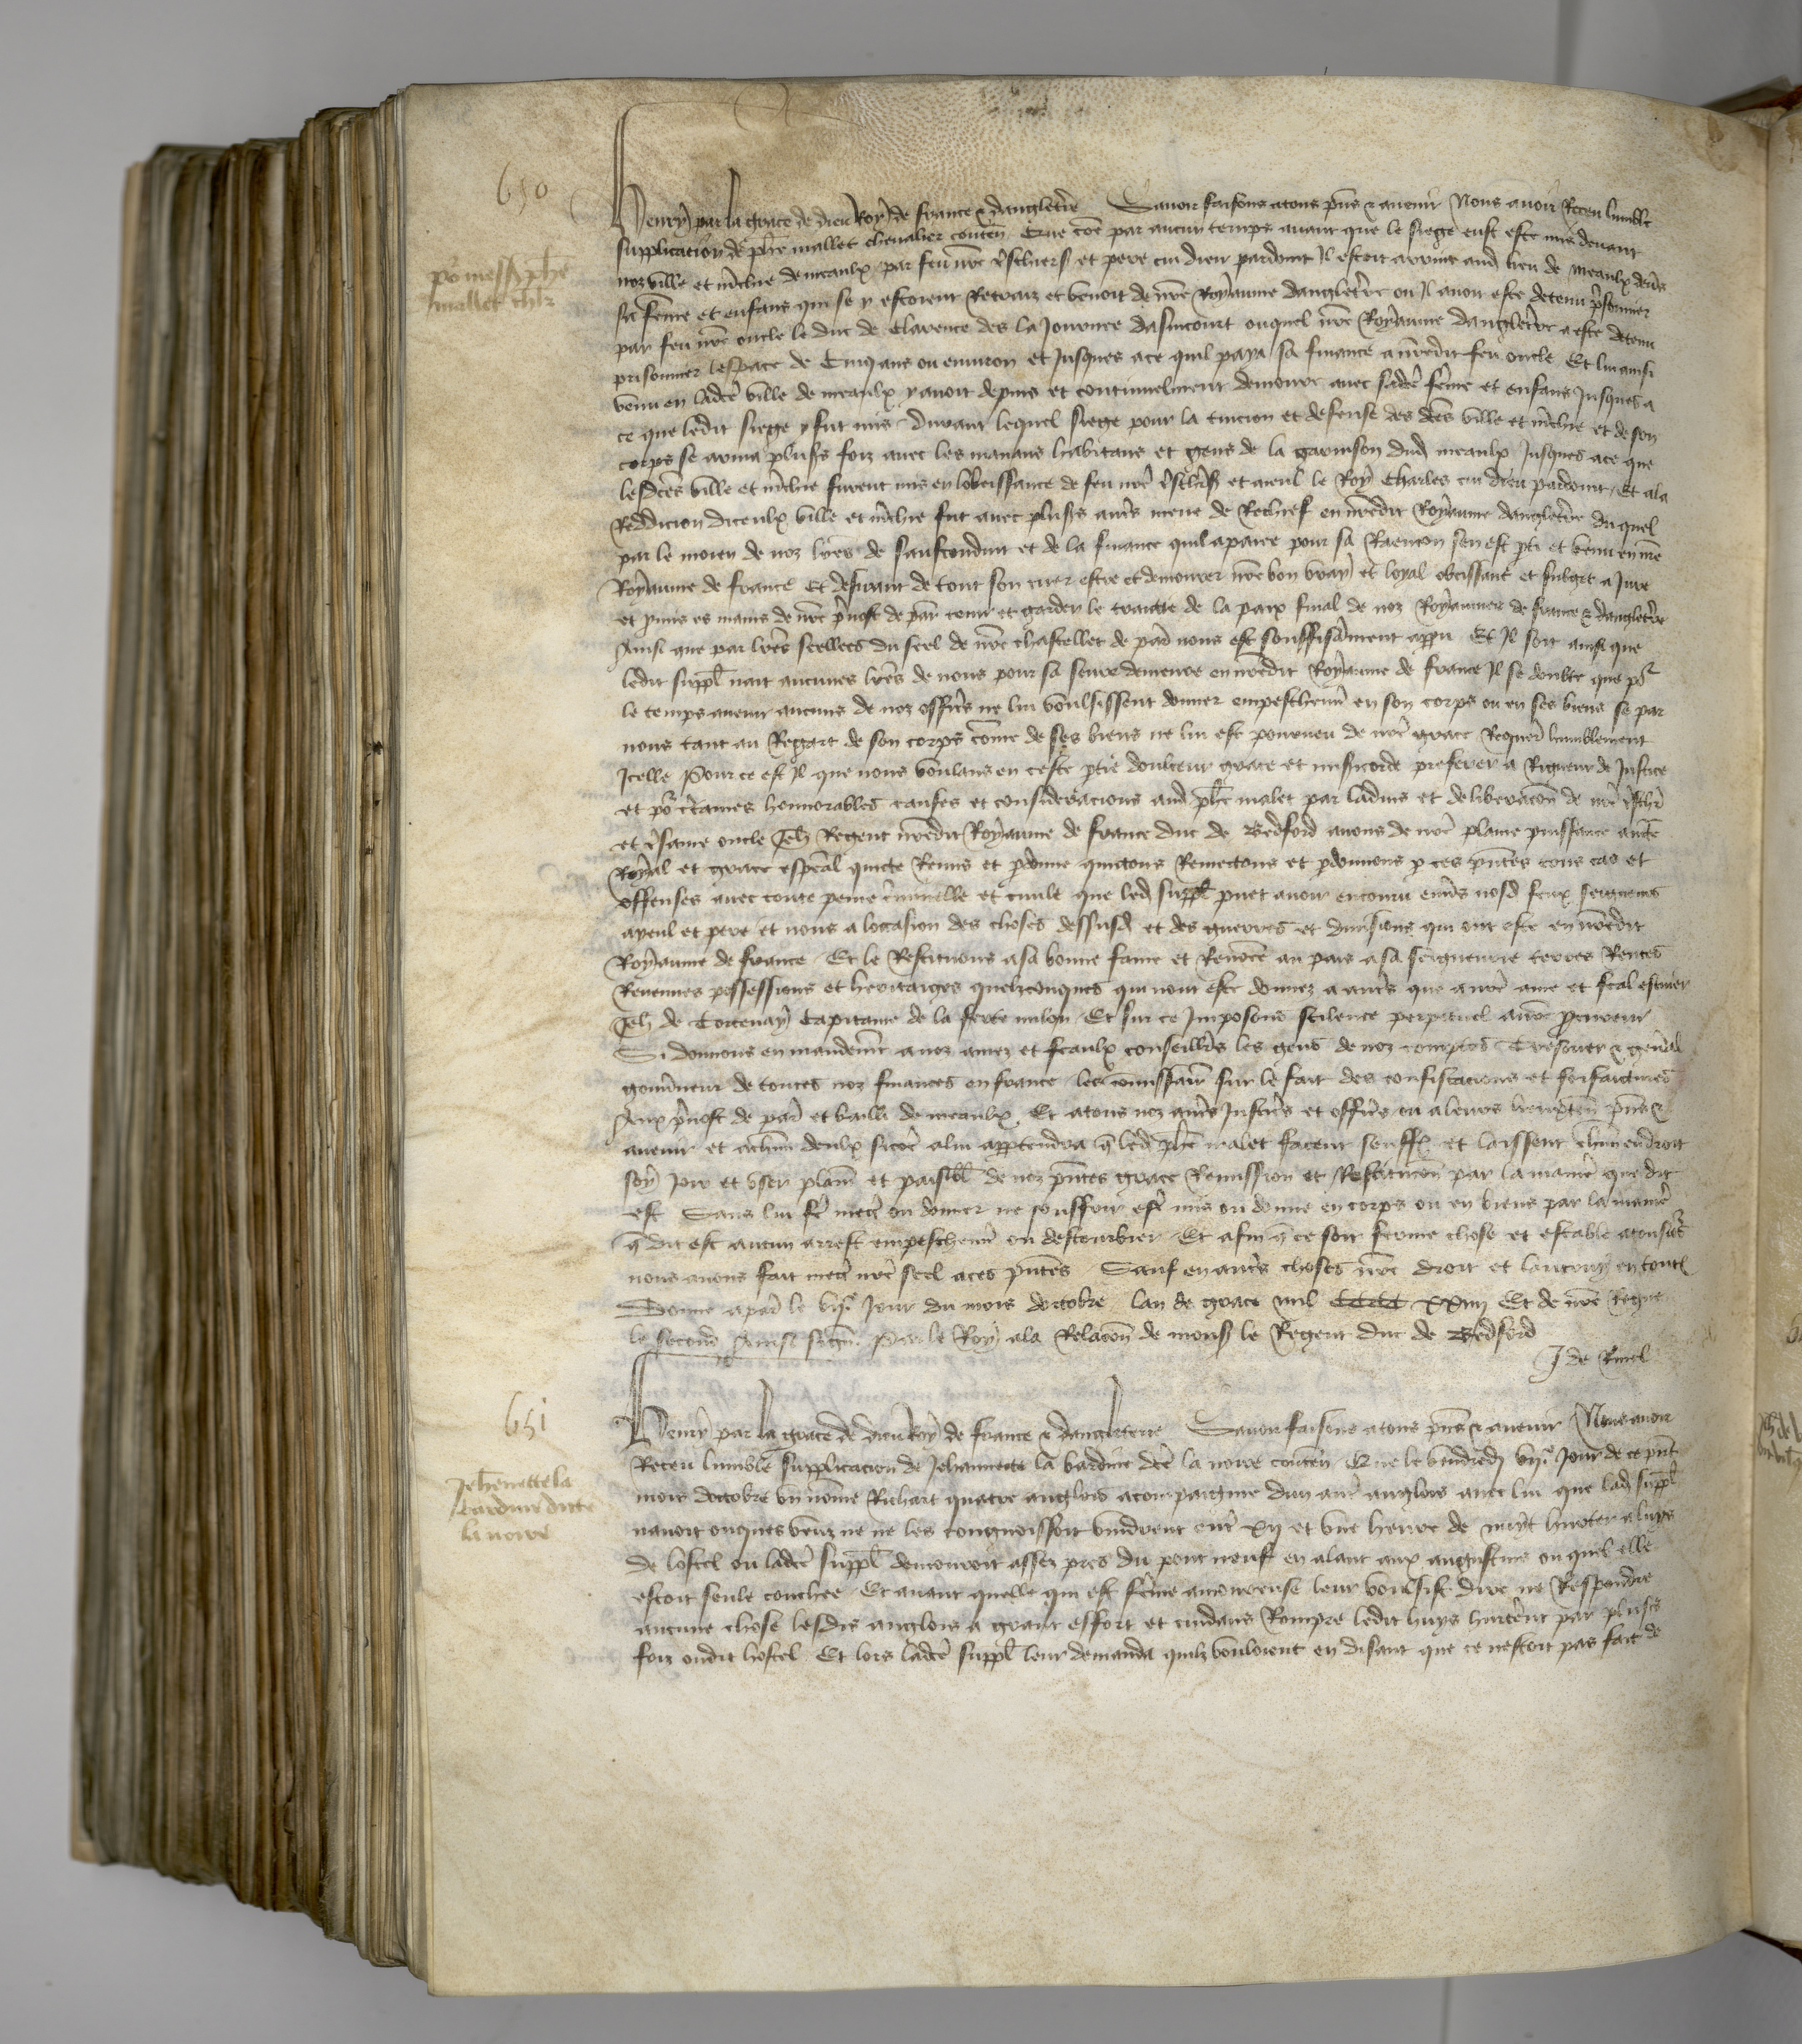 650
Henry par la grace de dieu Roy de france & dangletre Sauoir faisons a tous pns & auenir Nous auoir Receu lumble
supplicacion de phe mallet cheualier conten Que coe par aucun temps auant que le siege eust este mis deuant
po mess phe
mallet chlr
noz ville et mchie de meaulx par feu nre tschiers et pere cui dieu pardoint Il estoit arriue aud lieu de meaulx deuers
sa feme et enfans qui se y estoient Retraiz et venoit de nre Royaume dangletre ou Il auoit este detenu prisonnier
par feu nre oncle le duc de Clarence des la Journee dasincourt ouquel nre Royaume dangletre a este detenu
prisonnier lespace de Cinq ans ou enuiron et Jusques a ce quil paya sa finance a nredit feu oncle Et lui ainsi
venu en ladce ville de meaulx y auoit depuis et continuelment demoure auec sadce feme et enfans Jusques a
ce que ledit siege y fut mis Durant lequel siege pour la tuicion et defense des dces ville et mchie et de son
corps se arma pluss foiz auec les manans habitans et gens de la garnison dud meaulx Jusques a ce que
lesdces ville et mchie furent mis en lobeissance de feu nre tschrs et aieul le Roy Charles cui dieu pardoint Et a la
Reddicion diceulx ville et mchie fut auec pluss aurs mene de Rechief en nredit Royaume dangletre du quel
par le moien de noz lres de saufconduit et de la finance quil a paiee pour sa Raencon sen est pti et venu en nre
Royaume de france Et desirant de tout son cuer estre et demourer nre bon vray et loyal obeissant et subget a Jure
et pmis es mains de nre preuost de par tenir et garder le traictie de la paix final de noz Royaumes de france & dangletre
Ainsi que par lres scellees du scel de nre chastellet de par nous est souffisamment apparu Et Il soit ainsi que
ledit suppl nait aucunes lres de nous pour sa seure demeure en nredit Royaume de france Il se doubte que por
le temps auenir aucuns de noz officrs ne lui voulsissent donner empeschemt en son corps ou en ses biens se par
nous tant au Regart de son corps come de ses biens ne lui est pourueu de nre grace Requert humblement
Icelle Pour ce est Il que nous voulans en ceste ptie doulceur grace et misicorde preferer a Rigueur de Justice
et por ctaines honnorables causes et consideracions aud phe malet par laduis et deliberacon de nre tschr
et tsame oncle Jeh Regent nredit Royaume de france duc de Bedford auons de nre plaine puissance aucte
Royal et grace espcal quicte Remis et pdonne quictons Remectons et pdonnons p ces pntes tous cas et
offenses auec toute peine criminelle et ciuile que led suppl puet auoir encouru enuers nosd feux seigneurs
ayeul et pere et nous a locasion des choses dessusd et des guerres et diuisions qui ont este en nredit
Royaume de france Et le Restituons a sa bonne fame et Renomee au pais a sa seigneurie terres Rentes
Reuenues possessions et heritaiges quelzconques qui nont este donnez a aurs que a nre ame et feal escuier
Jeh de Tortenay Capitaine de la ferte milon Et sur ce Imposons scilence perpetuel a nre procureur
Si donnons en mandemt a noz amez et feaulx conseillrs les gens de noz comptes Tresorier & genal
gouuneur de toutes noz finances en france les comissairs sur le fait des confiscacions et forfaictures
Aux preuost de par et bailli de meaulx Et a tous noz aurs Justicrs et officrs ou a leurs lieuxten pns &
auenir et a chun deulx sicoe a lui appartendra q led phe malet facent seuffr et laissent chun endroit
soy Joir et vser plainnt et paisibl de noz pntes grace Remission et Restitucon par la maniere que dit
est Sans lui fe mectr ou donner ne souffrir estre mis ou donne en corps ou en biens par la maniere
q dit est aucun arrest empeschemt ou destourbier Et afin q ce soit ferme chose et estable a tousiours
nous auons fait mectr nre scel a ces pntes Sauf en aurs choses nre droit et lautruy en toutes
Donne a par le vije Jour du mois doctobre lan de grace mil CCCC xxiiij Et de nre Regne
le second Ainsi signe Par le Roy a la Relacon de mons le Regent duc de Bedford
J de Rinel
651
Henry par la grace de dieu Roy de france & dangleterre Sauoir faisons a tous pns & auenir Nous auoir
Receu lumble supplicacion de Jehannette la bardine dce la noire conten Que le vendredi viije Jour de ce pnt
Jehannette la
bardine dicte
la noire
mois doctobre vn nome Richart quatre anglois acompaigne dun aure anglois auec lui que lad suppl
nauoit onques veuz ne ne les congnoissoit vindrent entre xij et vne heure de nuyt hurter a luys
de lostel ou ladce suppl demouroit assez pres du pont neuf en alant aux augustins ou quel elle
estoit seule couchee Et auant quelle qui est feme amoureuse leur voulsist dire ne Respondre
aucune chose lesdis anglois a grant effort et cuidans Rompre ledit huys hurterent par pluss
foiz oudit hostel Et lors ladce suppl leur demanda quilz vouloient en disant que ce nestoit pas fait de